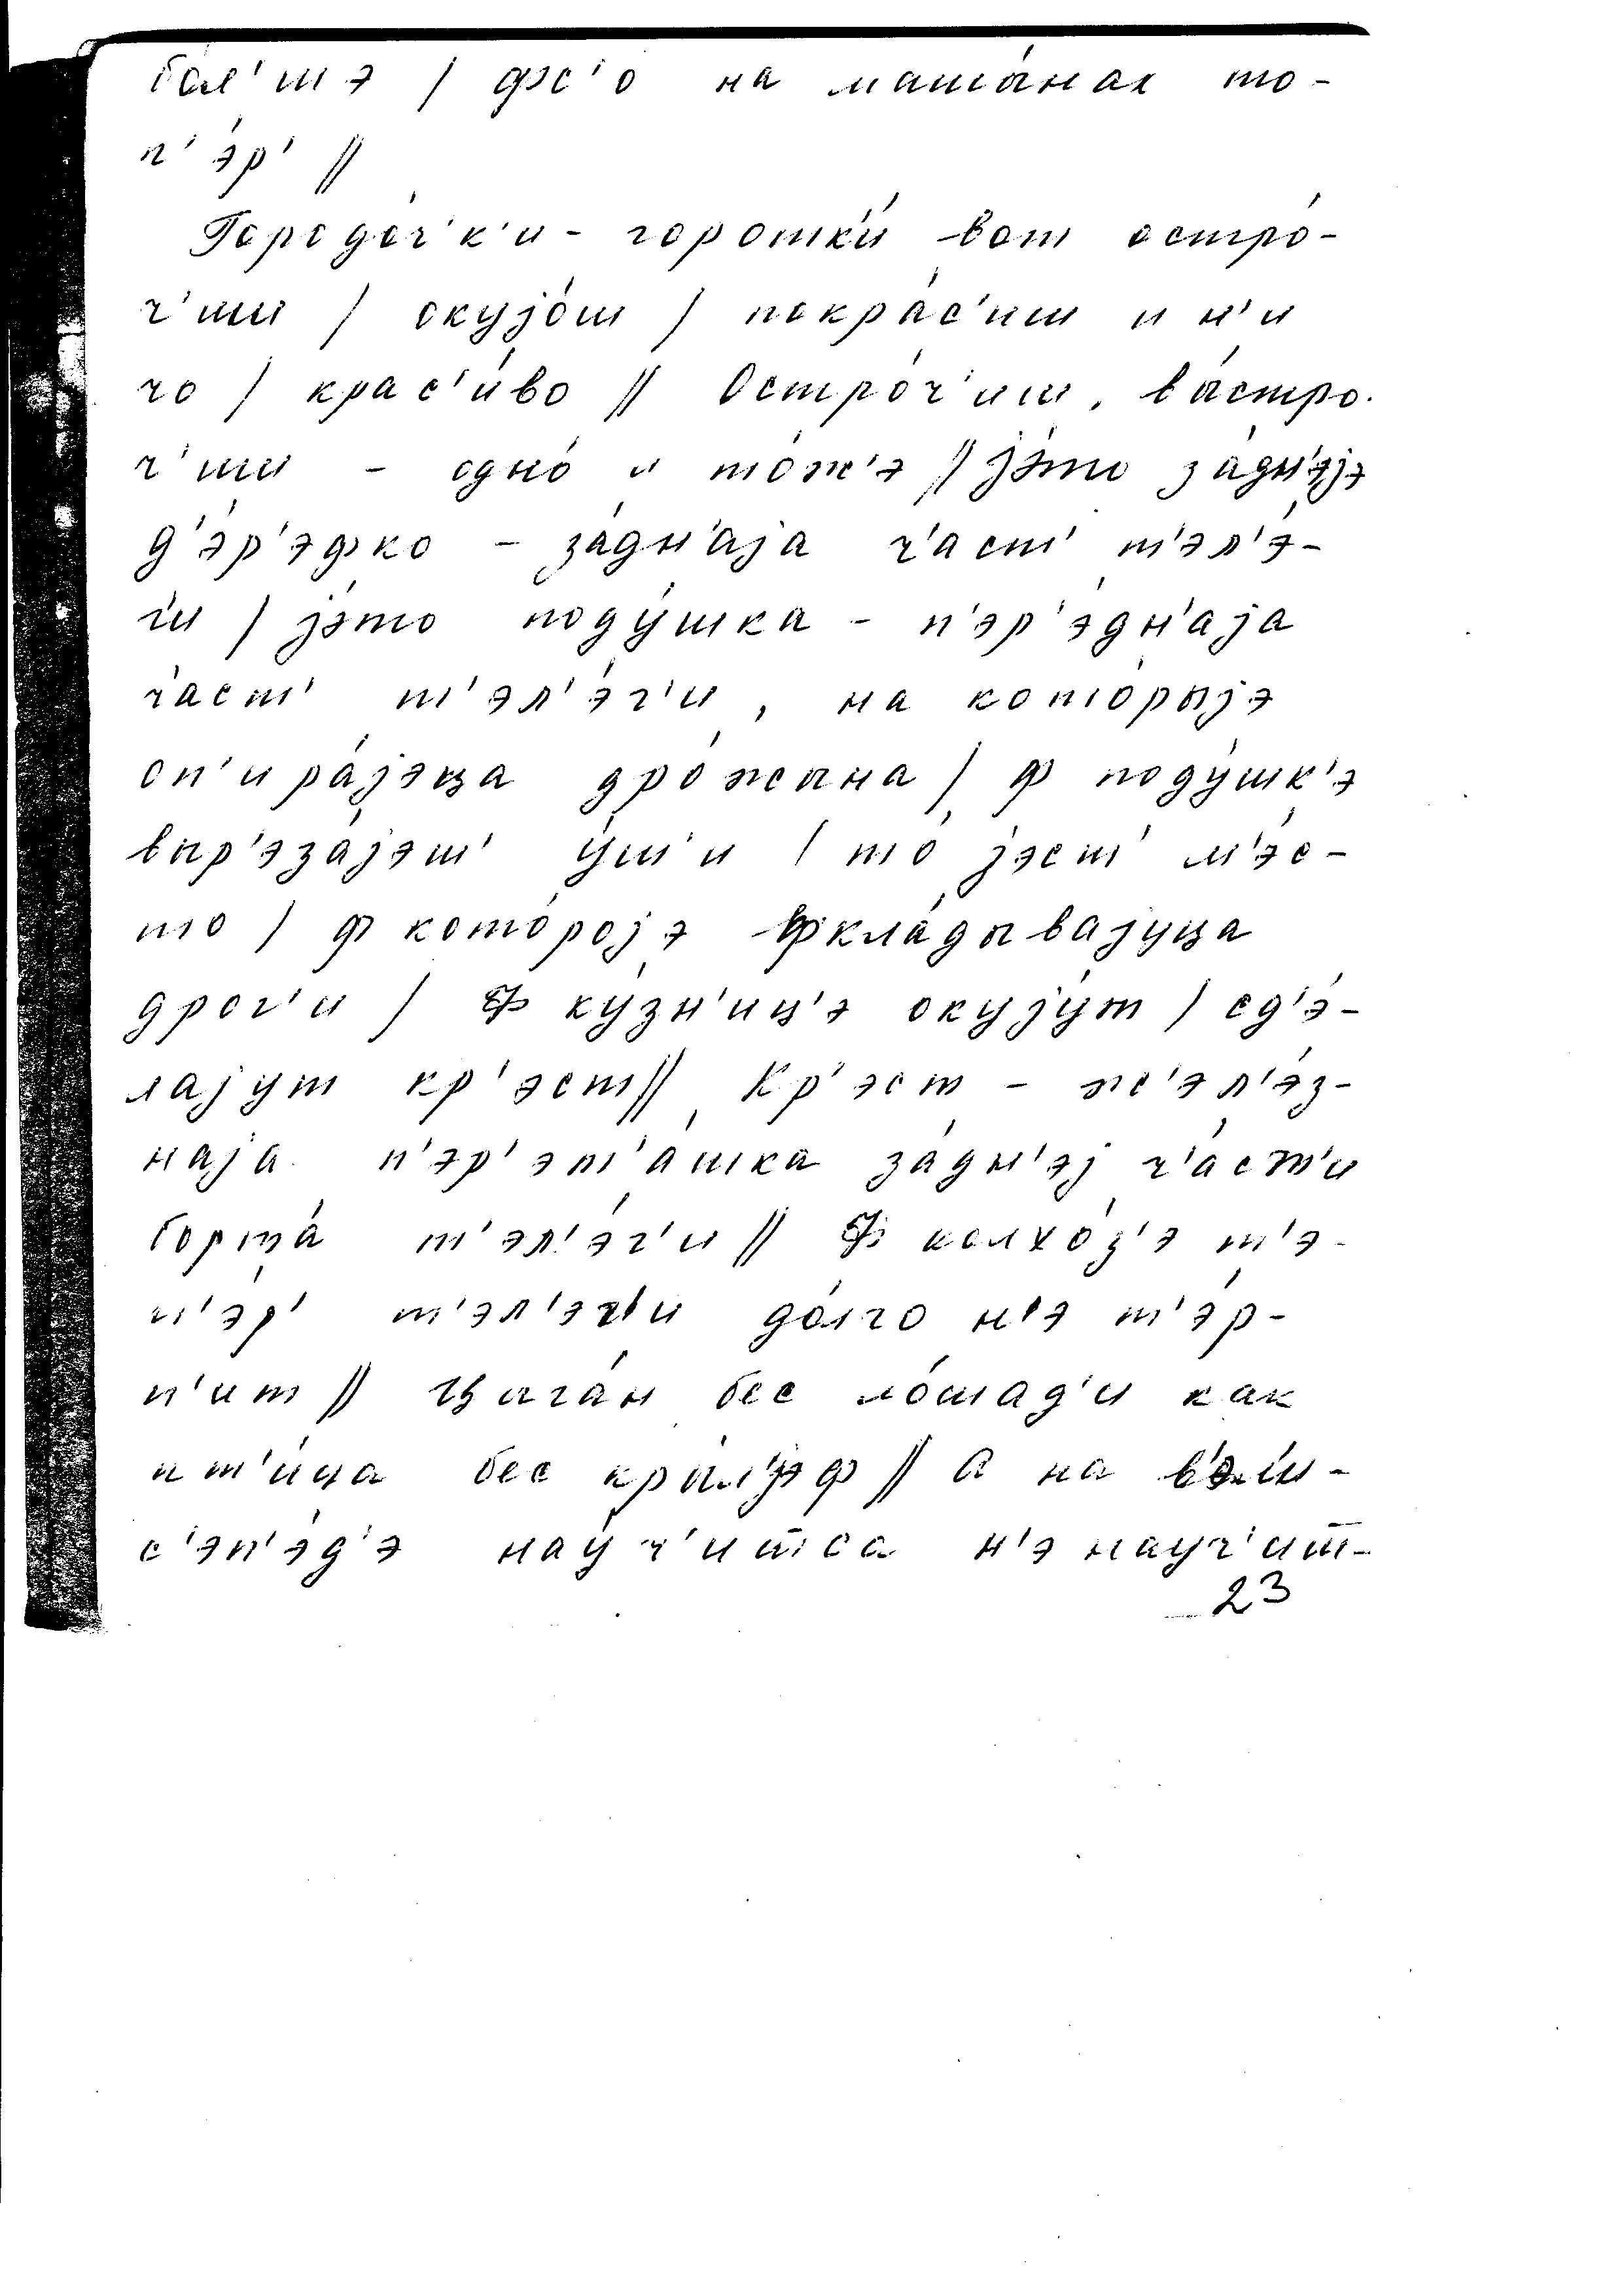 бо́л'шэ / фс'о на машы́нах то-
п'э́р' //
Городо́ч'к'и - горотки́ вот остро́-
ч'иш / окујо́ш / покра́с'иш и н'и
чо / крас'и́во // Остро́ч'иш, вы́стро-
ч'иш - одно́ и то́ж'э // јэ́то за́дн'эјэ
д'э́р'эфко - за́дн'аја ч'аст' т'эл'э́-
г'и / јэ́то поду́шка - п'эр'э́дн'аја
ч'аст' т'эл'э́г'и, на кото́рыјэ
оп'ира́јэца дро́жына / ф поду́шк'э
выр'эза́јэш' у́ш'и / то́ јэст' м'э́с-
то / ф кото́ројэ фкла́дывајуца
дрог'и / Ф ку́зн'иц'э окују́т / сд'э́-
лајут кр'эст // Кр'эст - ж'эл'э́з-
наја п'эр'эт'а́шка за́дн'эј ч'а́ст'и
борта́ т'эл'э́г'и // Ф колхо́з'э т'э-
п'э́р' т'эл'э́г'и до́лго н'э т'э́р-
п'ит // Цыга́н бес ло́шад'и как
пт'и́ца бес кры́л'јэф // А на в'эл'и-
с'эп'э́д'э нау́ч'ит̅са н'э науч'ит̅-
23